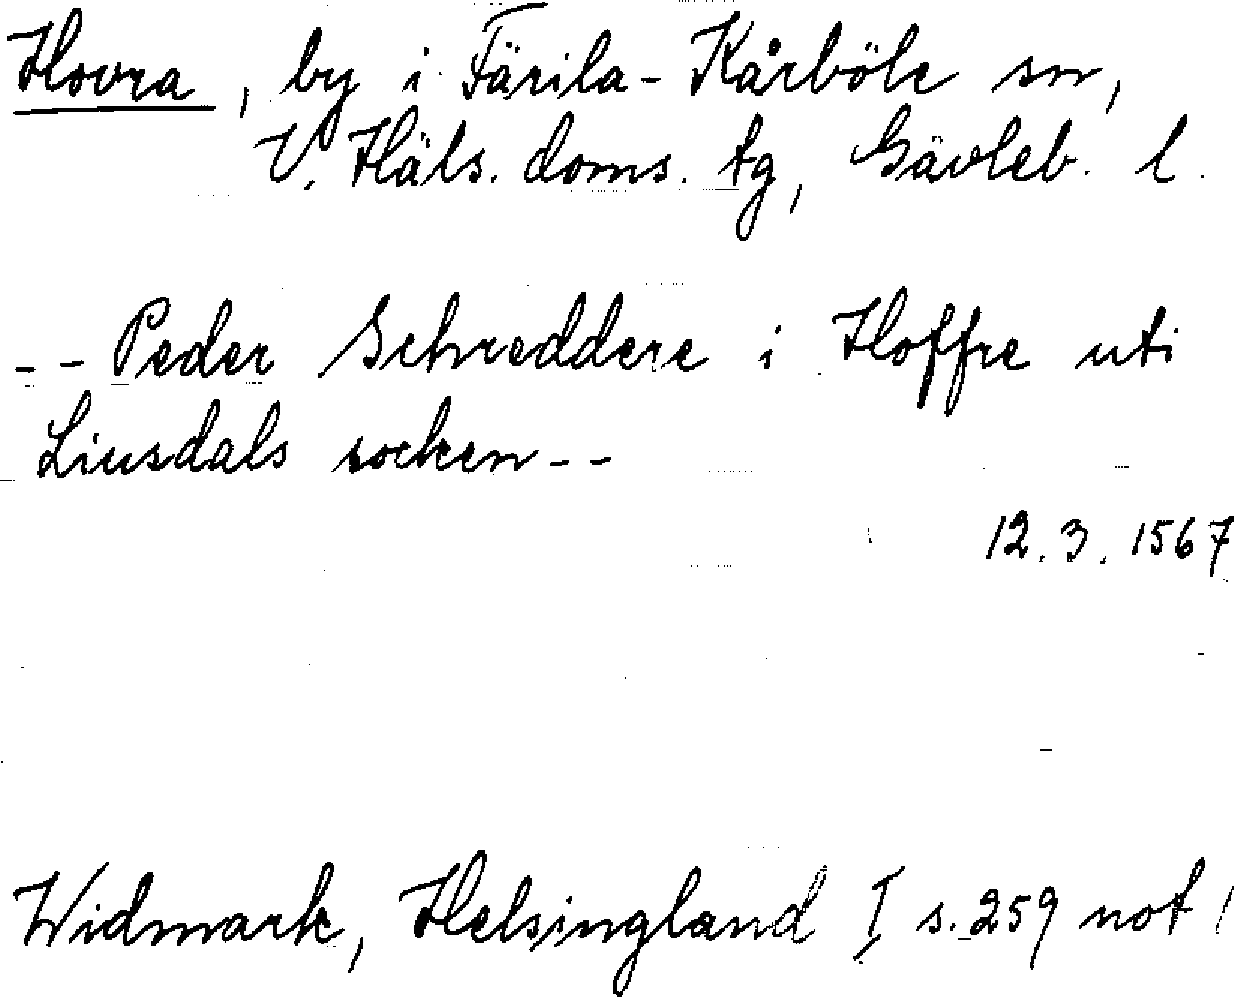 Hovra, by i Färila-Kårböle sn,
V. Häls. doms. tg, Gävleb. l.
-- Peder Schreddere i Hoffre uti
Liusdals socken--
12.3.1567
Widmark, Helsingland I s. 259 not 1